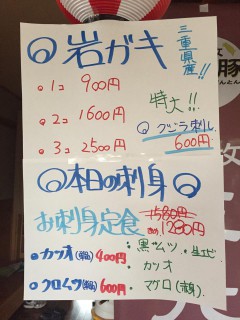 岩ガキ
三重県産!!
1コ 900円
2コ 1600円
3コ 2500円
特大!!
クジラ刺し
600円
本日の刺身
お刺身定食 1580円
1280円
カツオ(単品) 400円
クロムツ(単品) 600円
・黒ムツ ・生エビ
・カツオ
・マグロ(赤身)
豚